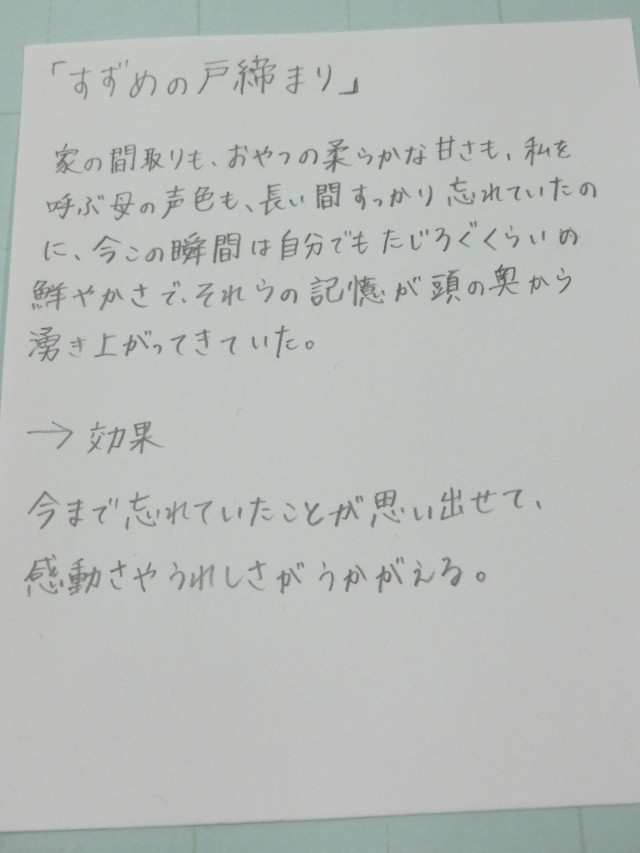 「すずめの戸締まり」
家の間取りも、おやつの柔らかな甘さも、私を
呼ぶ母の声色も、長い間すっかり忘れていたの
に、今この瞬間は自分でもたじろぐくらいの
鮮やかさで、それらの記憶が頭の奥から
湧き上がってきていた。
→ 効果
今まで忘れていたことが思い出せて、
感動さやうれしさがうかがえる。